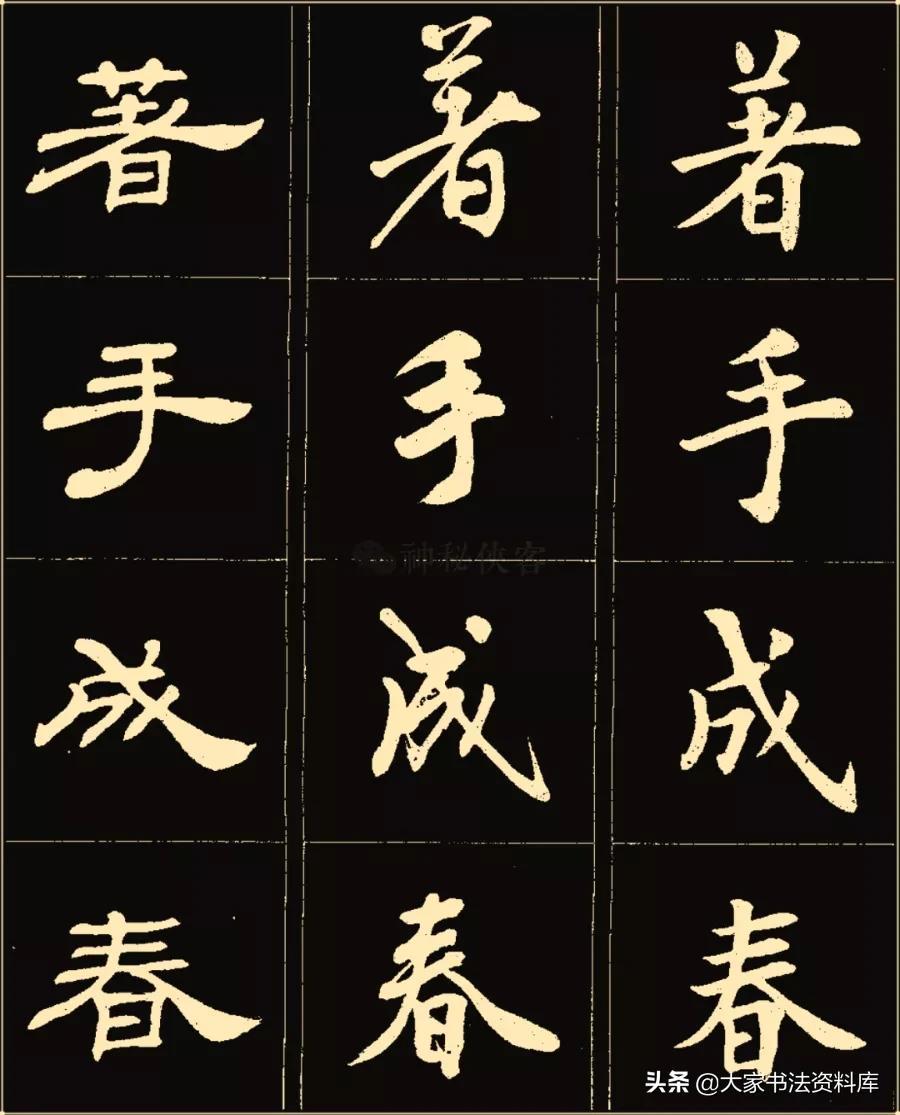 著手成春
著手成春
著手成春
神秘侠客
头条 @大家书法资料库